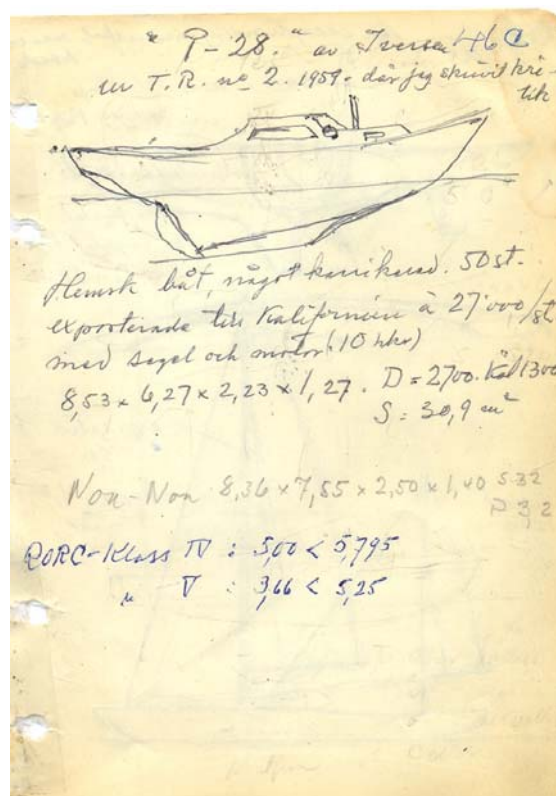 "P-28." av Iversen 46C
ur T.R. no 2. 1959. där jag skrivit kri-
tik
Hemsk båt, något karrikerad. 50 st.
exporterade till Kalifornien à 27'000/st
med segel och motor (10 hkr)
8,53 x 6,27 x 2,23 x 1,27. D = 2700. Köl 1300
S = 30,9 m²
Non-Non 8,36 x 7,55 x 2,50 x 1,40 S 32
P 3,2
RORC-Klass IV : 5,00 < 5,795
" V : 3,66 < 5,25